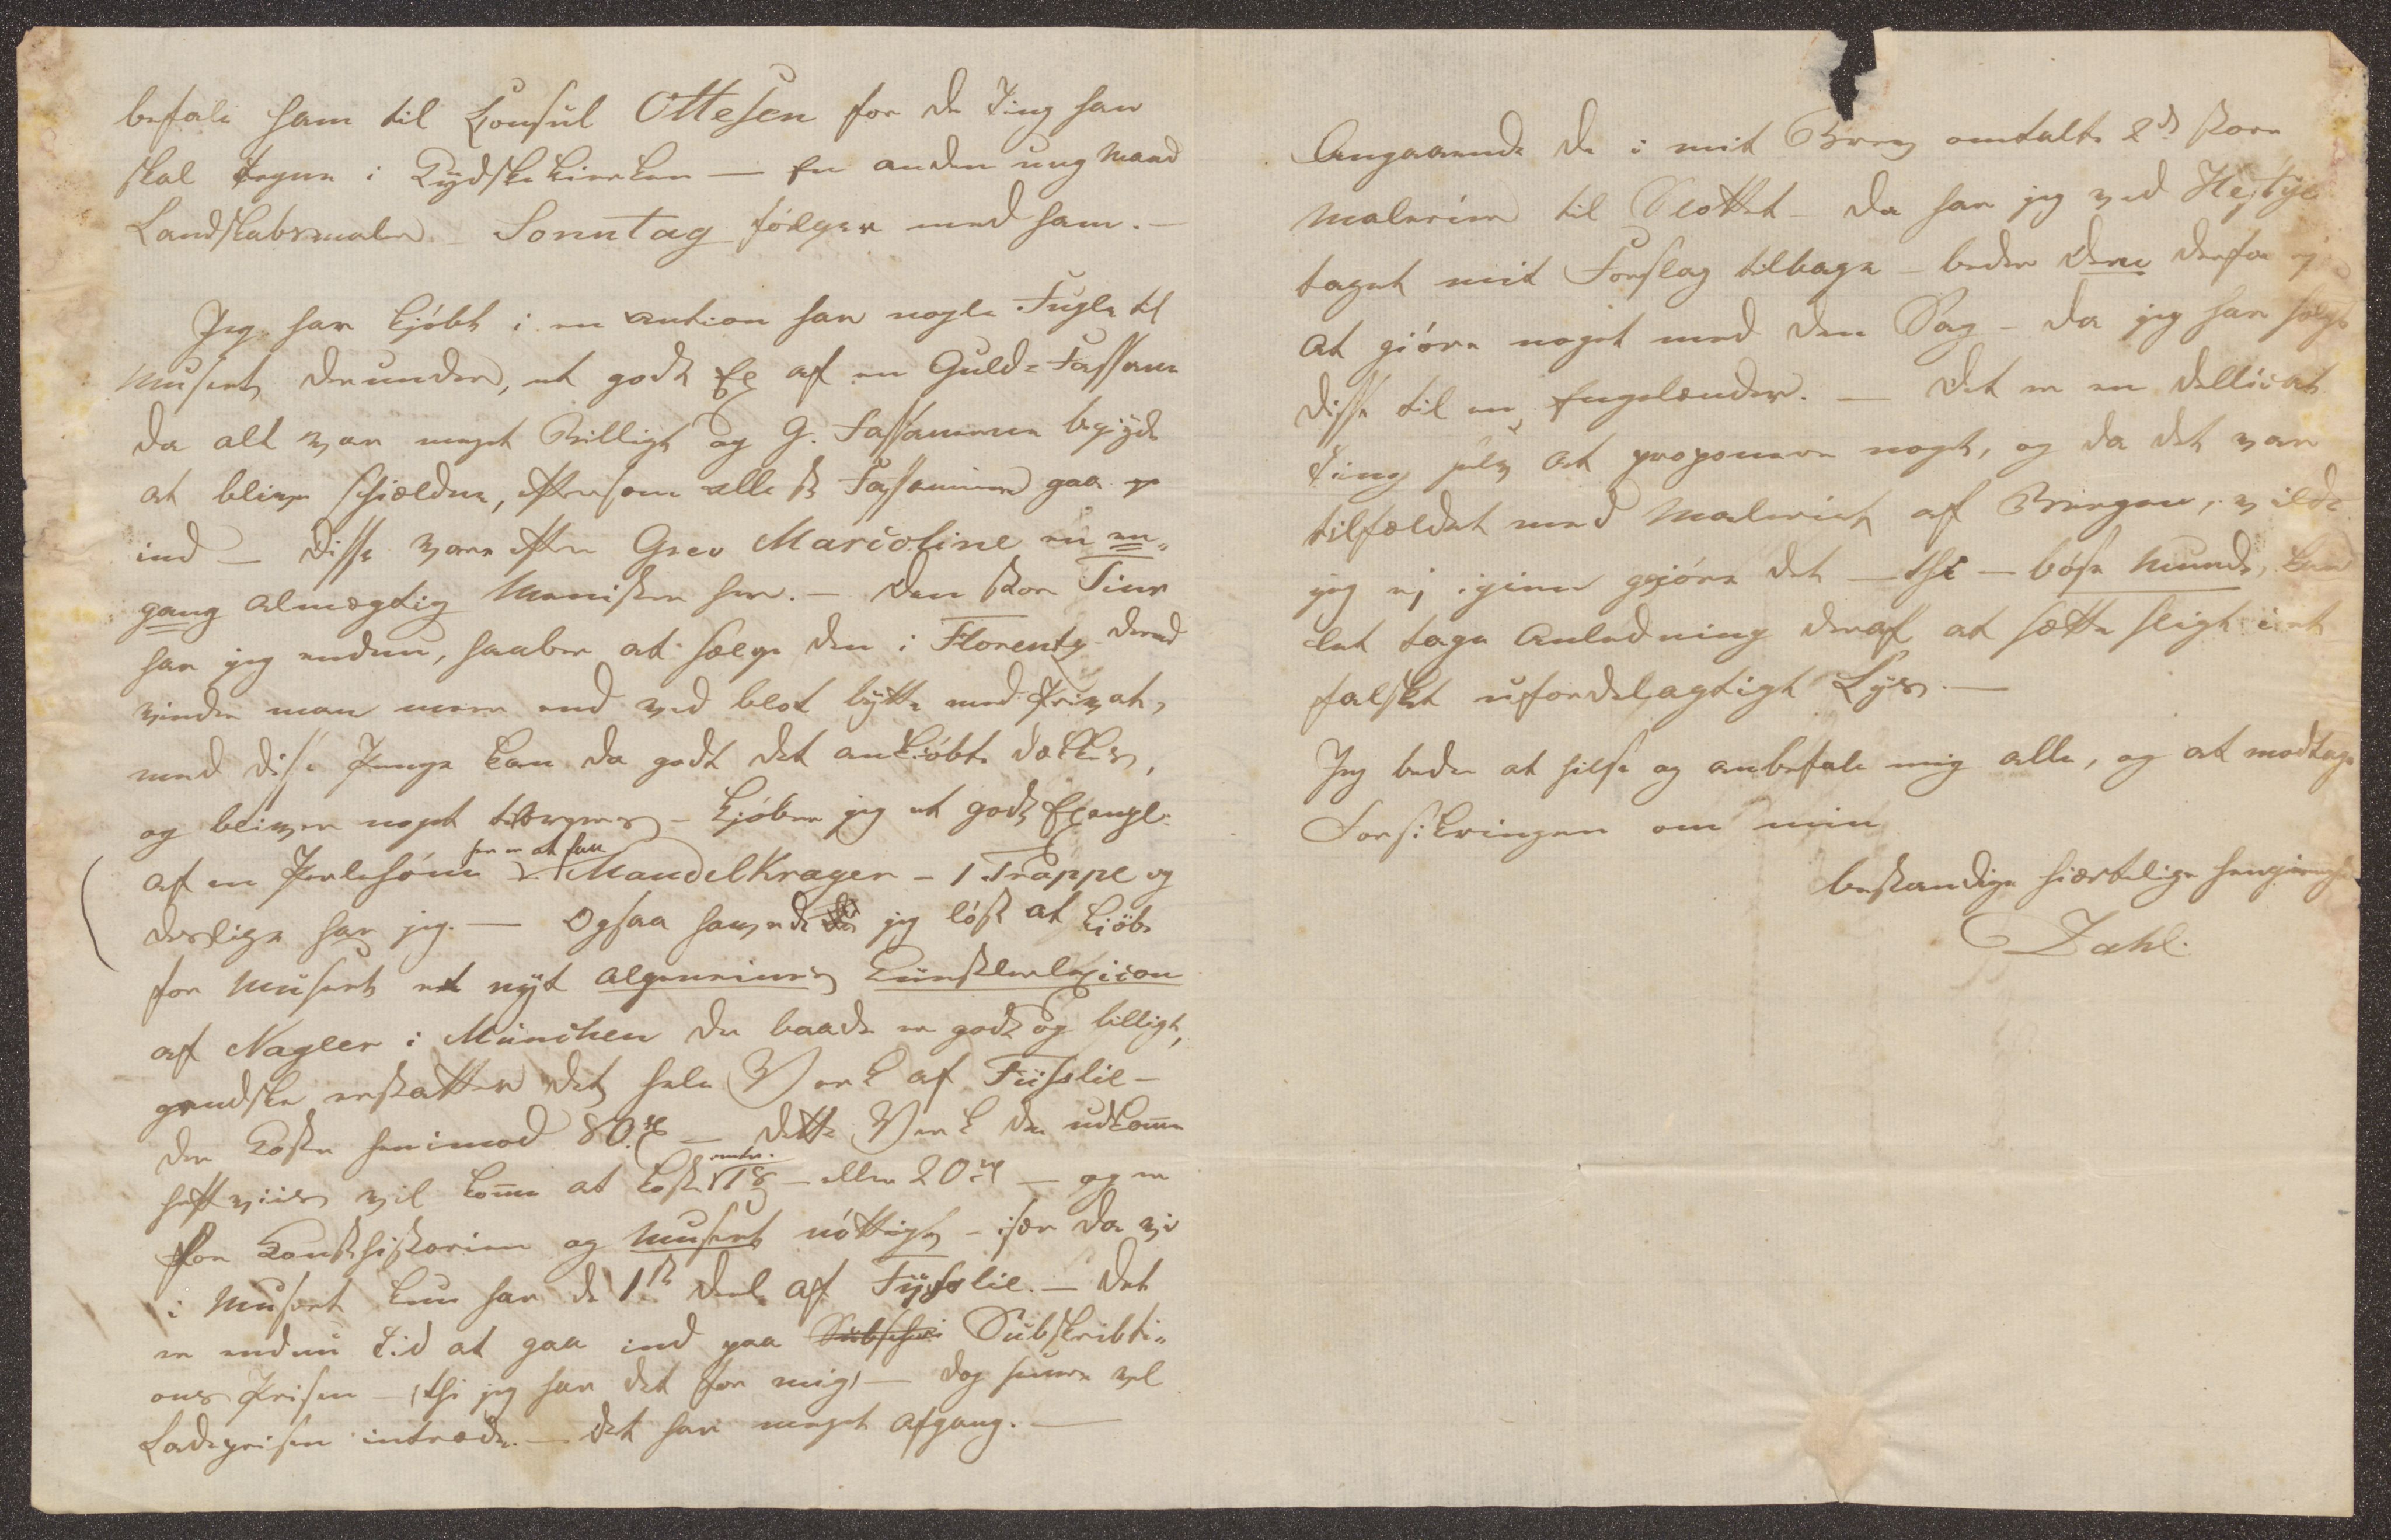 befale ham til Konsul Ottesen for de Ting han
skal tegne i Tydskekirken — En anden ung Mand
Landskabsmaler Sonntag fölger med ham. —
Jeg har kjöbt i en auction her nogle Fugle til
Museet, derunder, et godt Ex af en Guld-Fassan
da alt var meget Billigt og G. Fassanerne begÿnde
at blive schieldne, eftersom alle Fassanerier gaa
ind — disse vare efter Grev Marcoline en en„
gang almægtig Minister her. — Den store Tiur
har jeg endnu, haaber at sælge den i Florentz derved
vinder man mere end ved blot bÿtte med Privat,
med disse Penge kan da godt det ankiöbte dækkes,
og bliver noget tilovers — kjöber jeg et godt Exempl:
af en Perlehöne her er at faa Mandelkrager — 1 Trappe og
deslige har jeg. — Ogsaa havde jeg löst at kiöbe
for Museet et nÿt algemeines Künstlerlexicon
af Nagler i München der baade er godt og billigt,
gandske erstatter det hele Verk af Füsslie —
der koster henimod 80 — dette Verk der udkom̄er
heftviis vil kom̄e at koste omtr. 18 — eller 20 — og er
for Konsthistorien og Museet nöttigt — især da vi
i Museet kun har de 1ste deel af Fÿsslie. — Det
er endnu tid at gaa ind paa Subschri Subskribti„
ons Prisen — (thi jeg har det for mig) — dog snart vel
Ladeprisen intræder. — det har meget afgang. —
Angaaende de i mit Brev omtalte 2de store
Malerier til Slottet — da har jeg ved Heftÿe
taget mit Forslag tilbage — beder Dem derfor ej
at gjöre noget med den Sag — da jeg har solgt
disse til en Engelænder. — Det er en dellicat
Ting selv at proponere noget, og da det var
tilfældet med Maleriet af Bergen, vilde
jeg ej igien gjöre det — thi — böse Munde, kun
let tage Anledning deraf at sætte sligt i et
falsket ufordelagtigt Lÿs. —
Jeg beder at hilse og anbefale mig alle, og at modtage
Forsikringen om min
bestandige hiærtelige hengivenhed
Dahl.